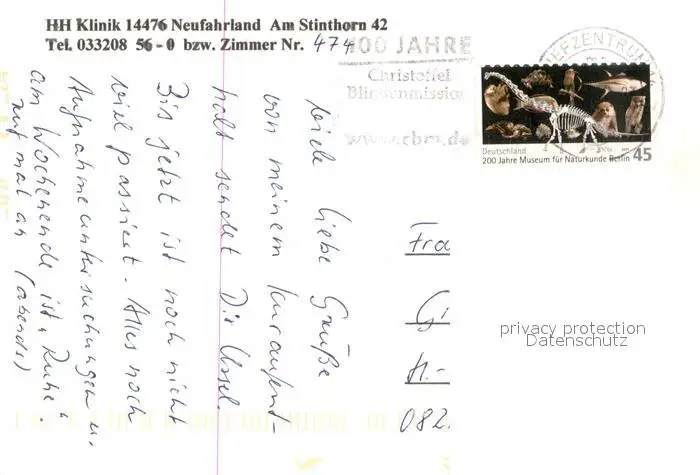 HH Klinik 14476 Neufahrland Am Stinthorn 42
Tel. 033208 56-0 bzw. Zimmer Nr. 474
100 JAHRE
Christoffel
Blindenmission
www.cbm.de
BRIEFZENTRUM
Deutschland
200 Jahre Museum für Naturkunde Berlin 45
Viele liebe Grüße
von meinem Kuraufent-
halt sendet Dir Ursel.
Bis jetzt ist noch nicht
viel passiert. Alles noch
Aufnahmeuntersuchungen u.
am Wochenende ist "Ruhe".
Ruf mal an (abends)
Fra
Gi
A.-
082
privacy protection
Datenschutz